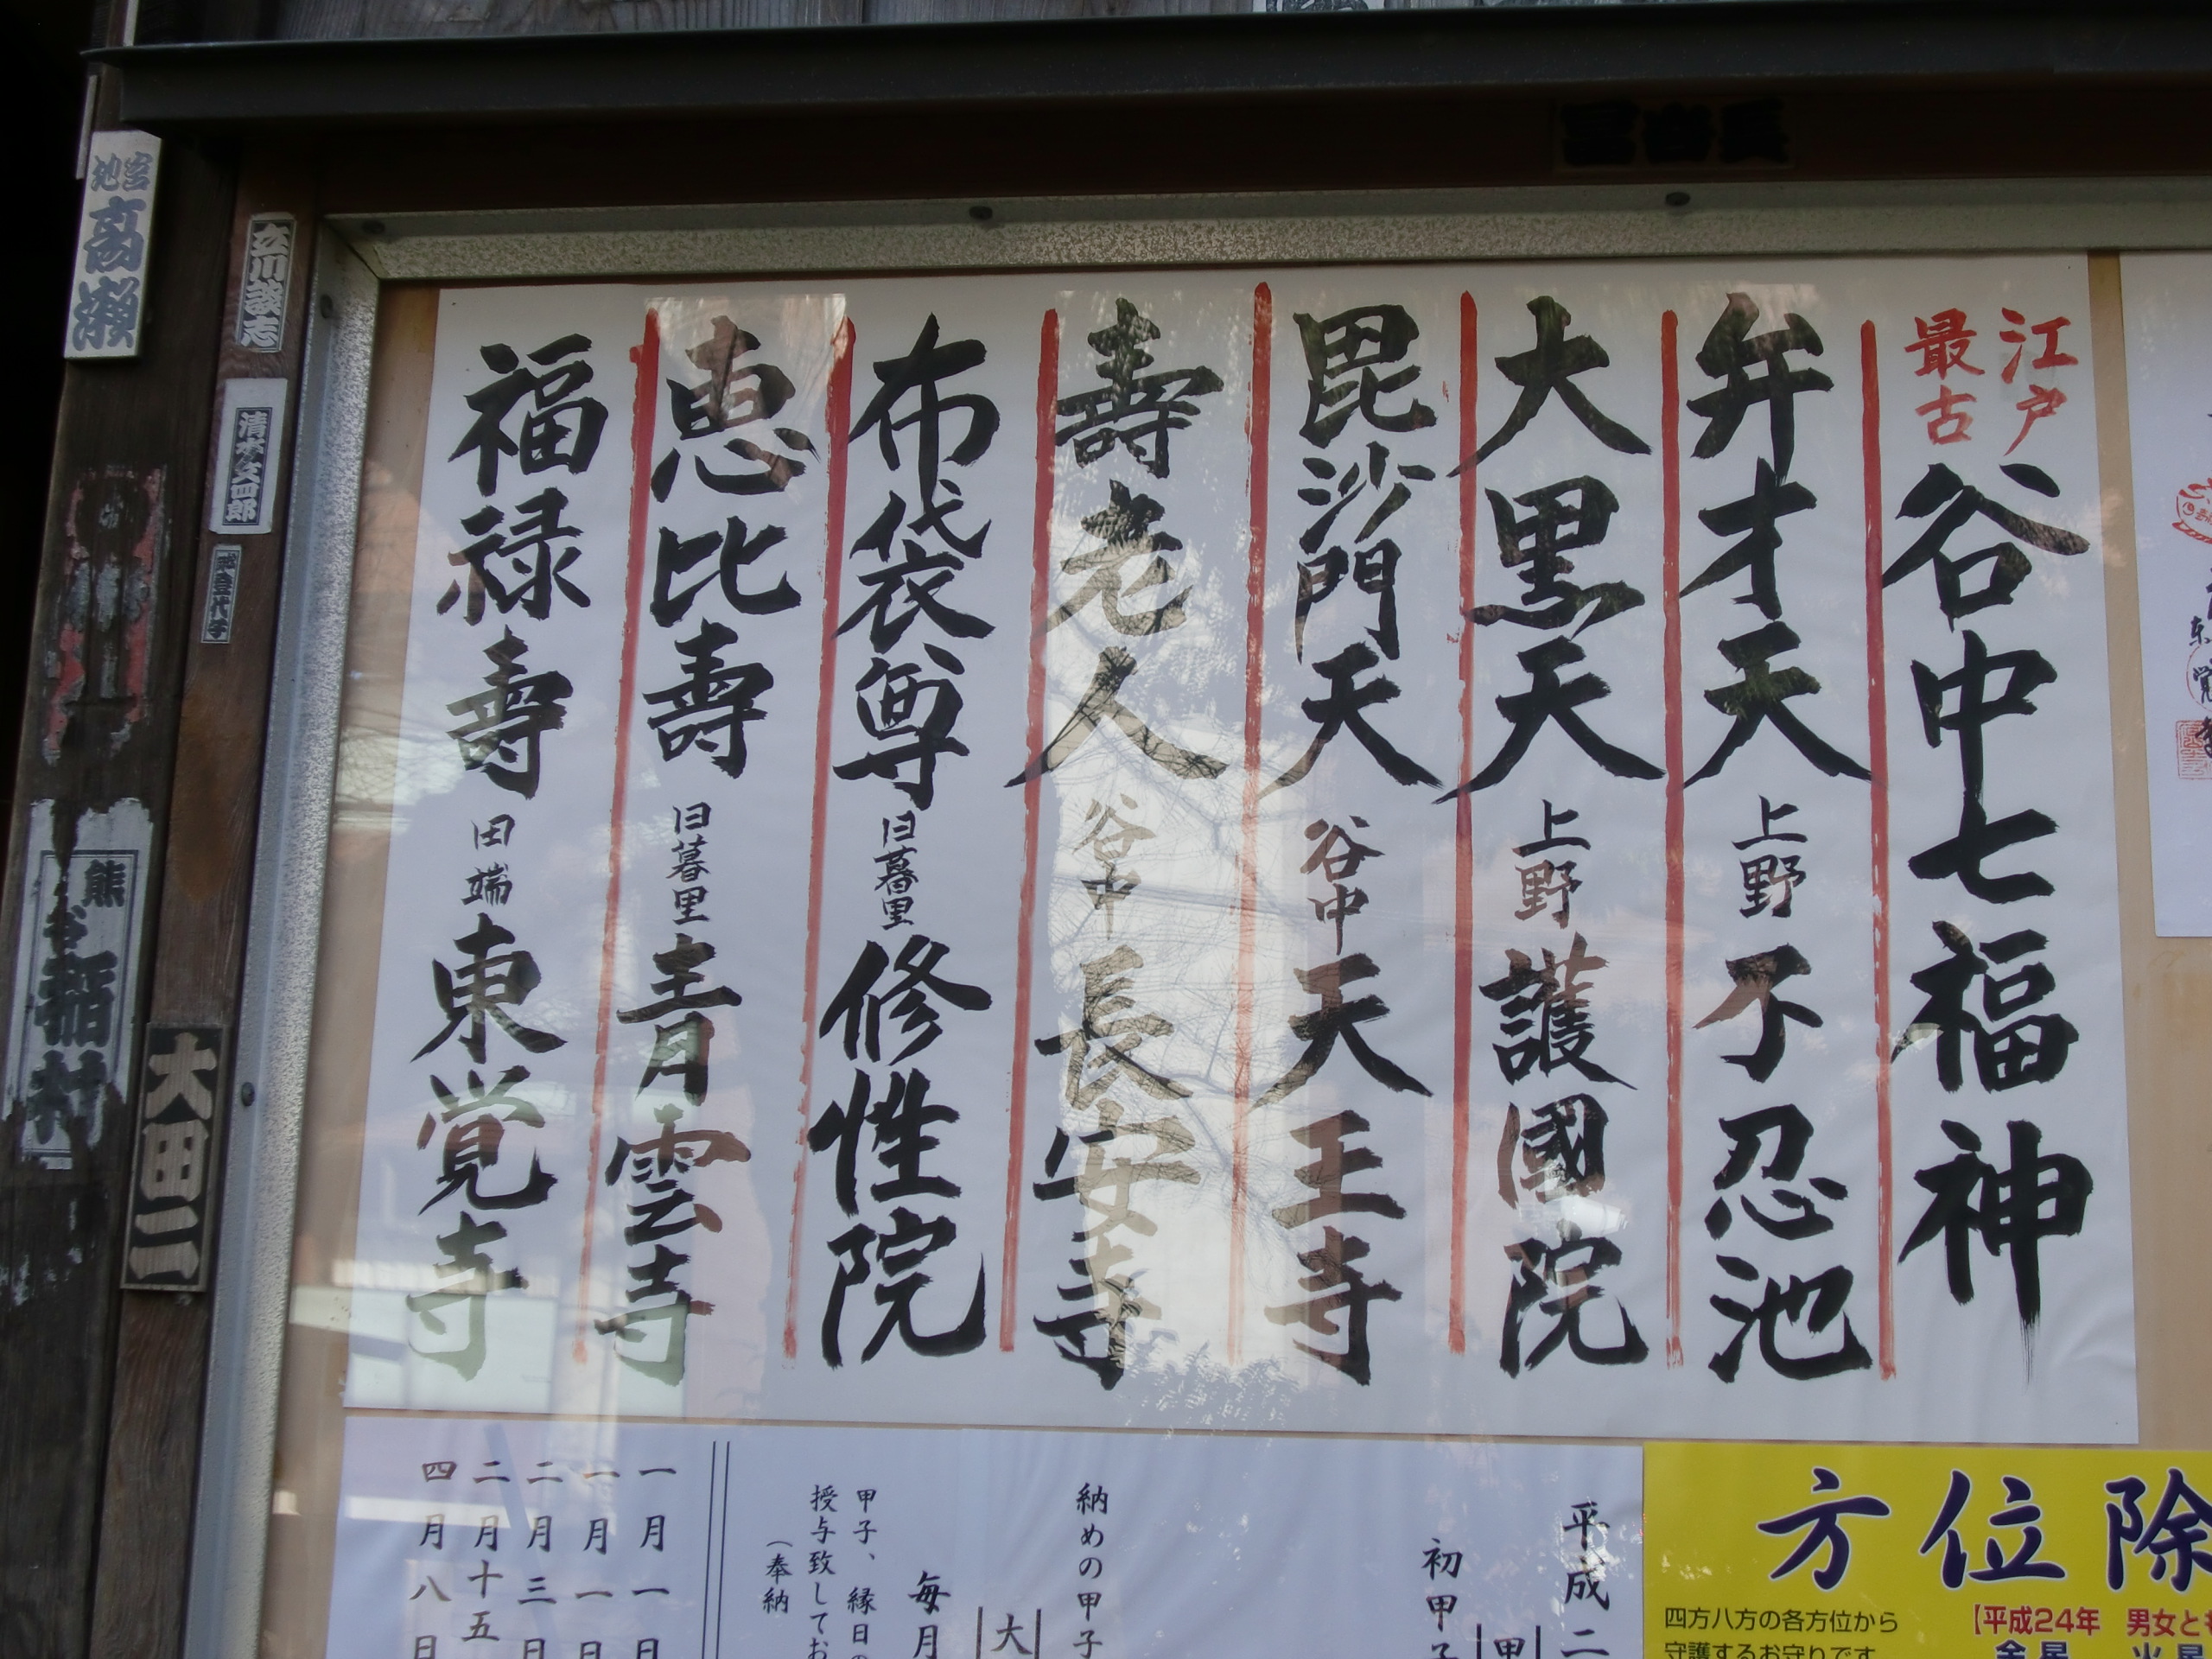 江戸
最古
谷中七福神
弁才天 上野 不忍池
大黒天 上野 護國院
毘沙門天 谷中 天王寺
壽老人 谷中 長安寺
布袋尊 日暮里 修性院
恵比壽 日暮里 青雲寺
福禄壽 田端 東覚寺
平成二
初甲子
甲
納めの甲子
大
毎月
甲子、縁日の
授与致してお
（奉納
一月一日
一月一日
二月三日
二月十五
四月八日
方位除
四方八方の各方位から
守護するお守りです
【平成24年 男女とも
金星 火星
宮池
高瀬
立川談志
清水文四郎
熊谷
稲村
大田二